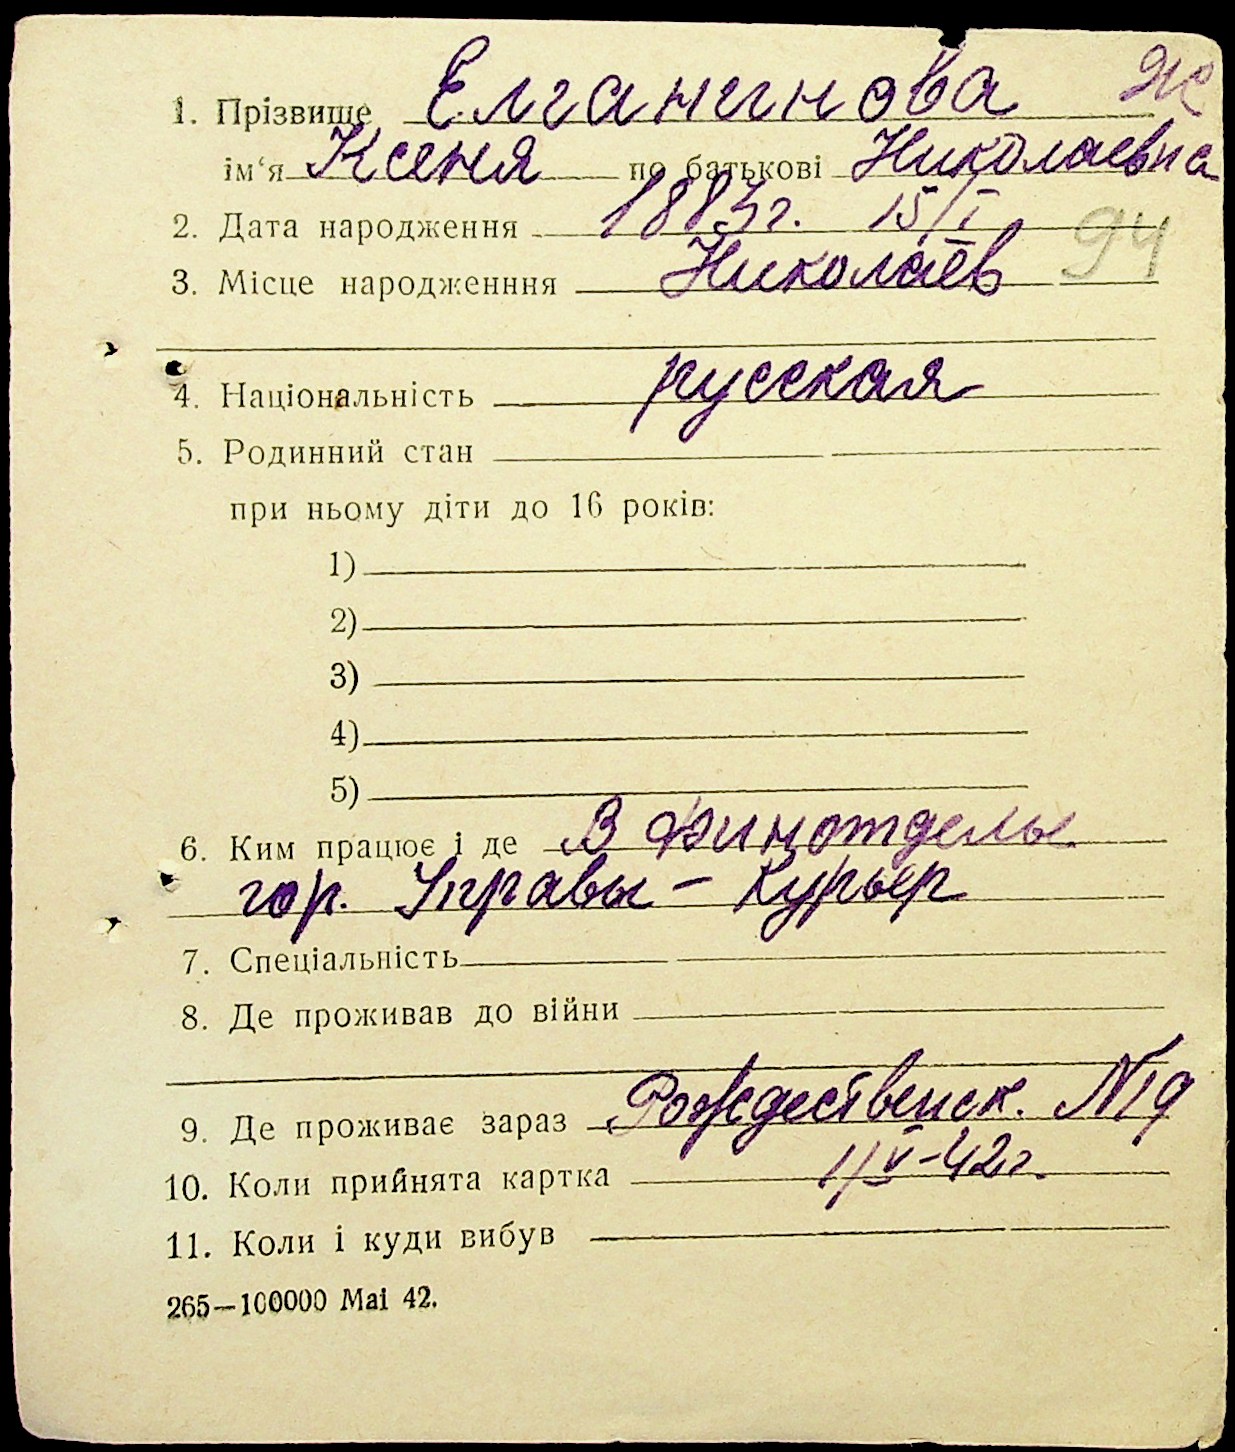 1. Прізвище Елганинова Ж
ім‘я Ксеня по батькові Николаевна
2. Дата народження 1883г. 15/I
3. Місце народженння Николаев 94
4. Національність русская
5. Родинний стан
при ньому діти до 16 років:
1)
2)
3)
4)
5)
6. Ким працює і де В Финотделы
гор. Управы – Курьер
7. Спеціальність
8. Де проживав до війни
9. Де проживає зараз Рождественск. №19
10. Коли прийнята картка 1/V-42г.
11. Коли і куди вибув
265—100000 Mai 42.